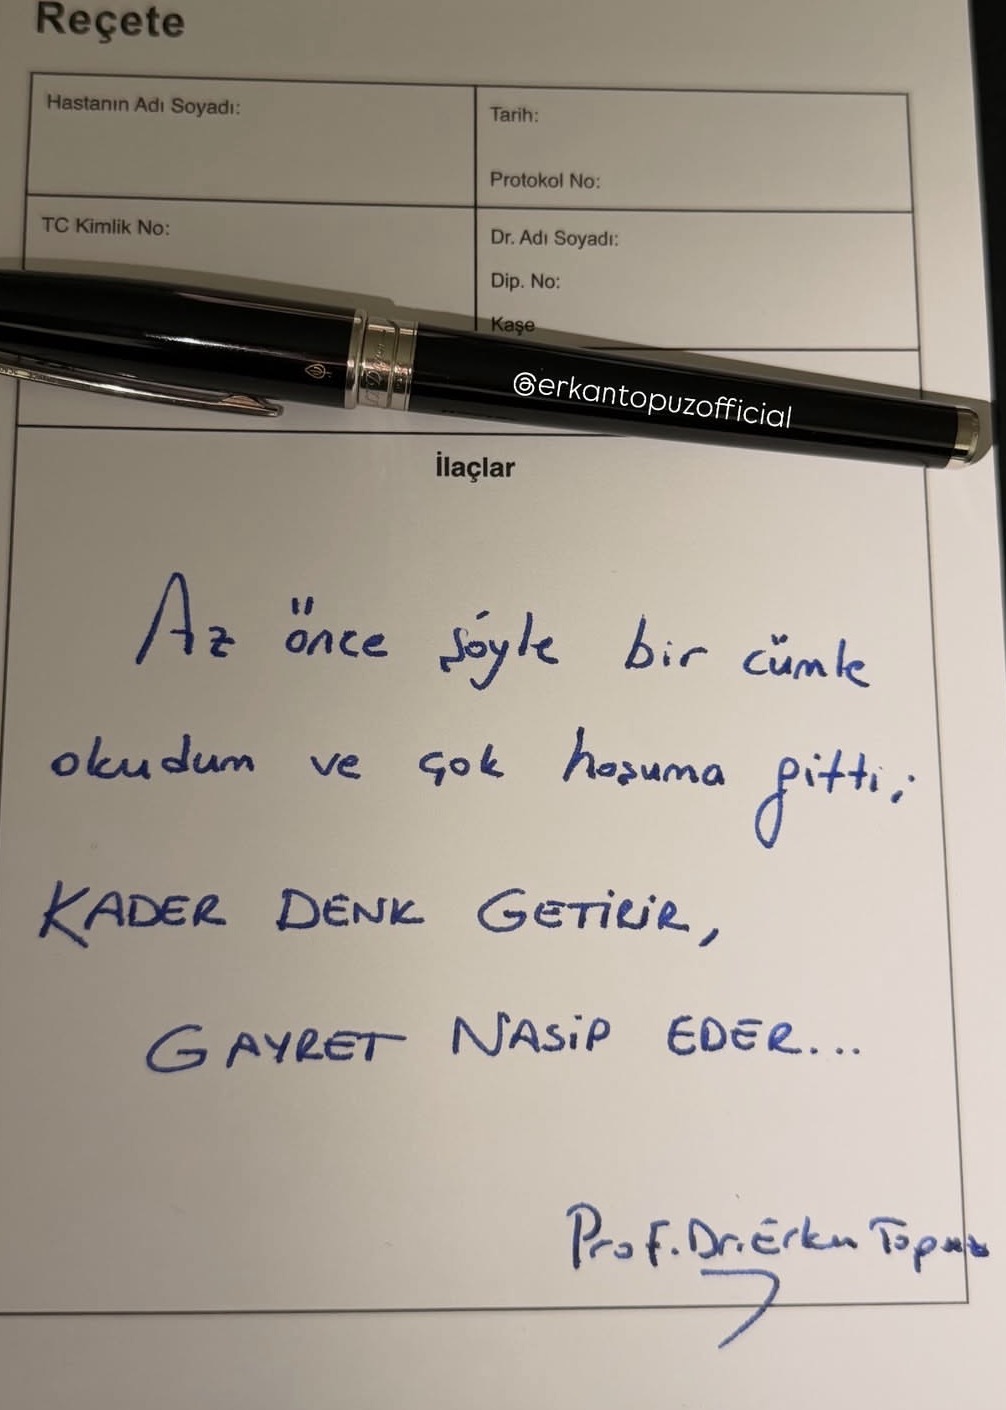 Reçete
Hastanın Adı Soyadı:
Tarih:
Protokol No:
TC Kimlik No:
Dr. Adı Soyadı:
Dip. No:
Kaşe
@erkantopuzofficial
İlaçlar
Az önce şöyle bir cümle
okudum ve çok hoşuma gitti;
KADER DENK GETİRİR,
GAYRET NASİP EDER...
Prof. Dr. Erkan Topuz